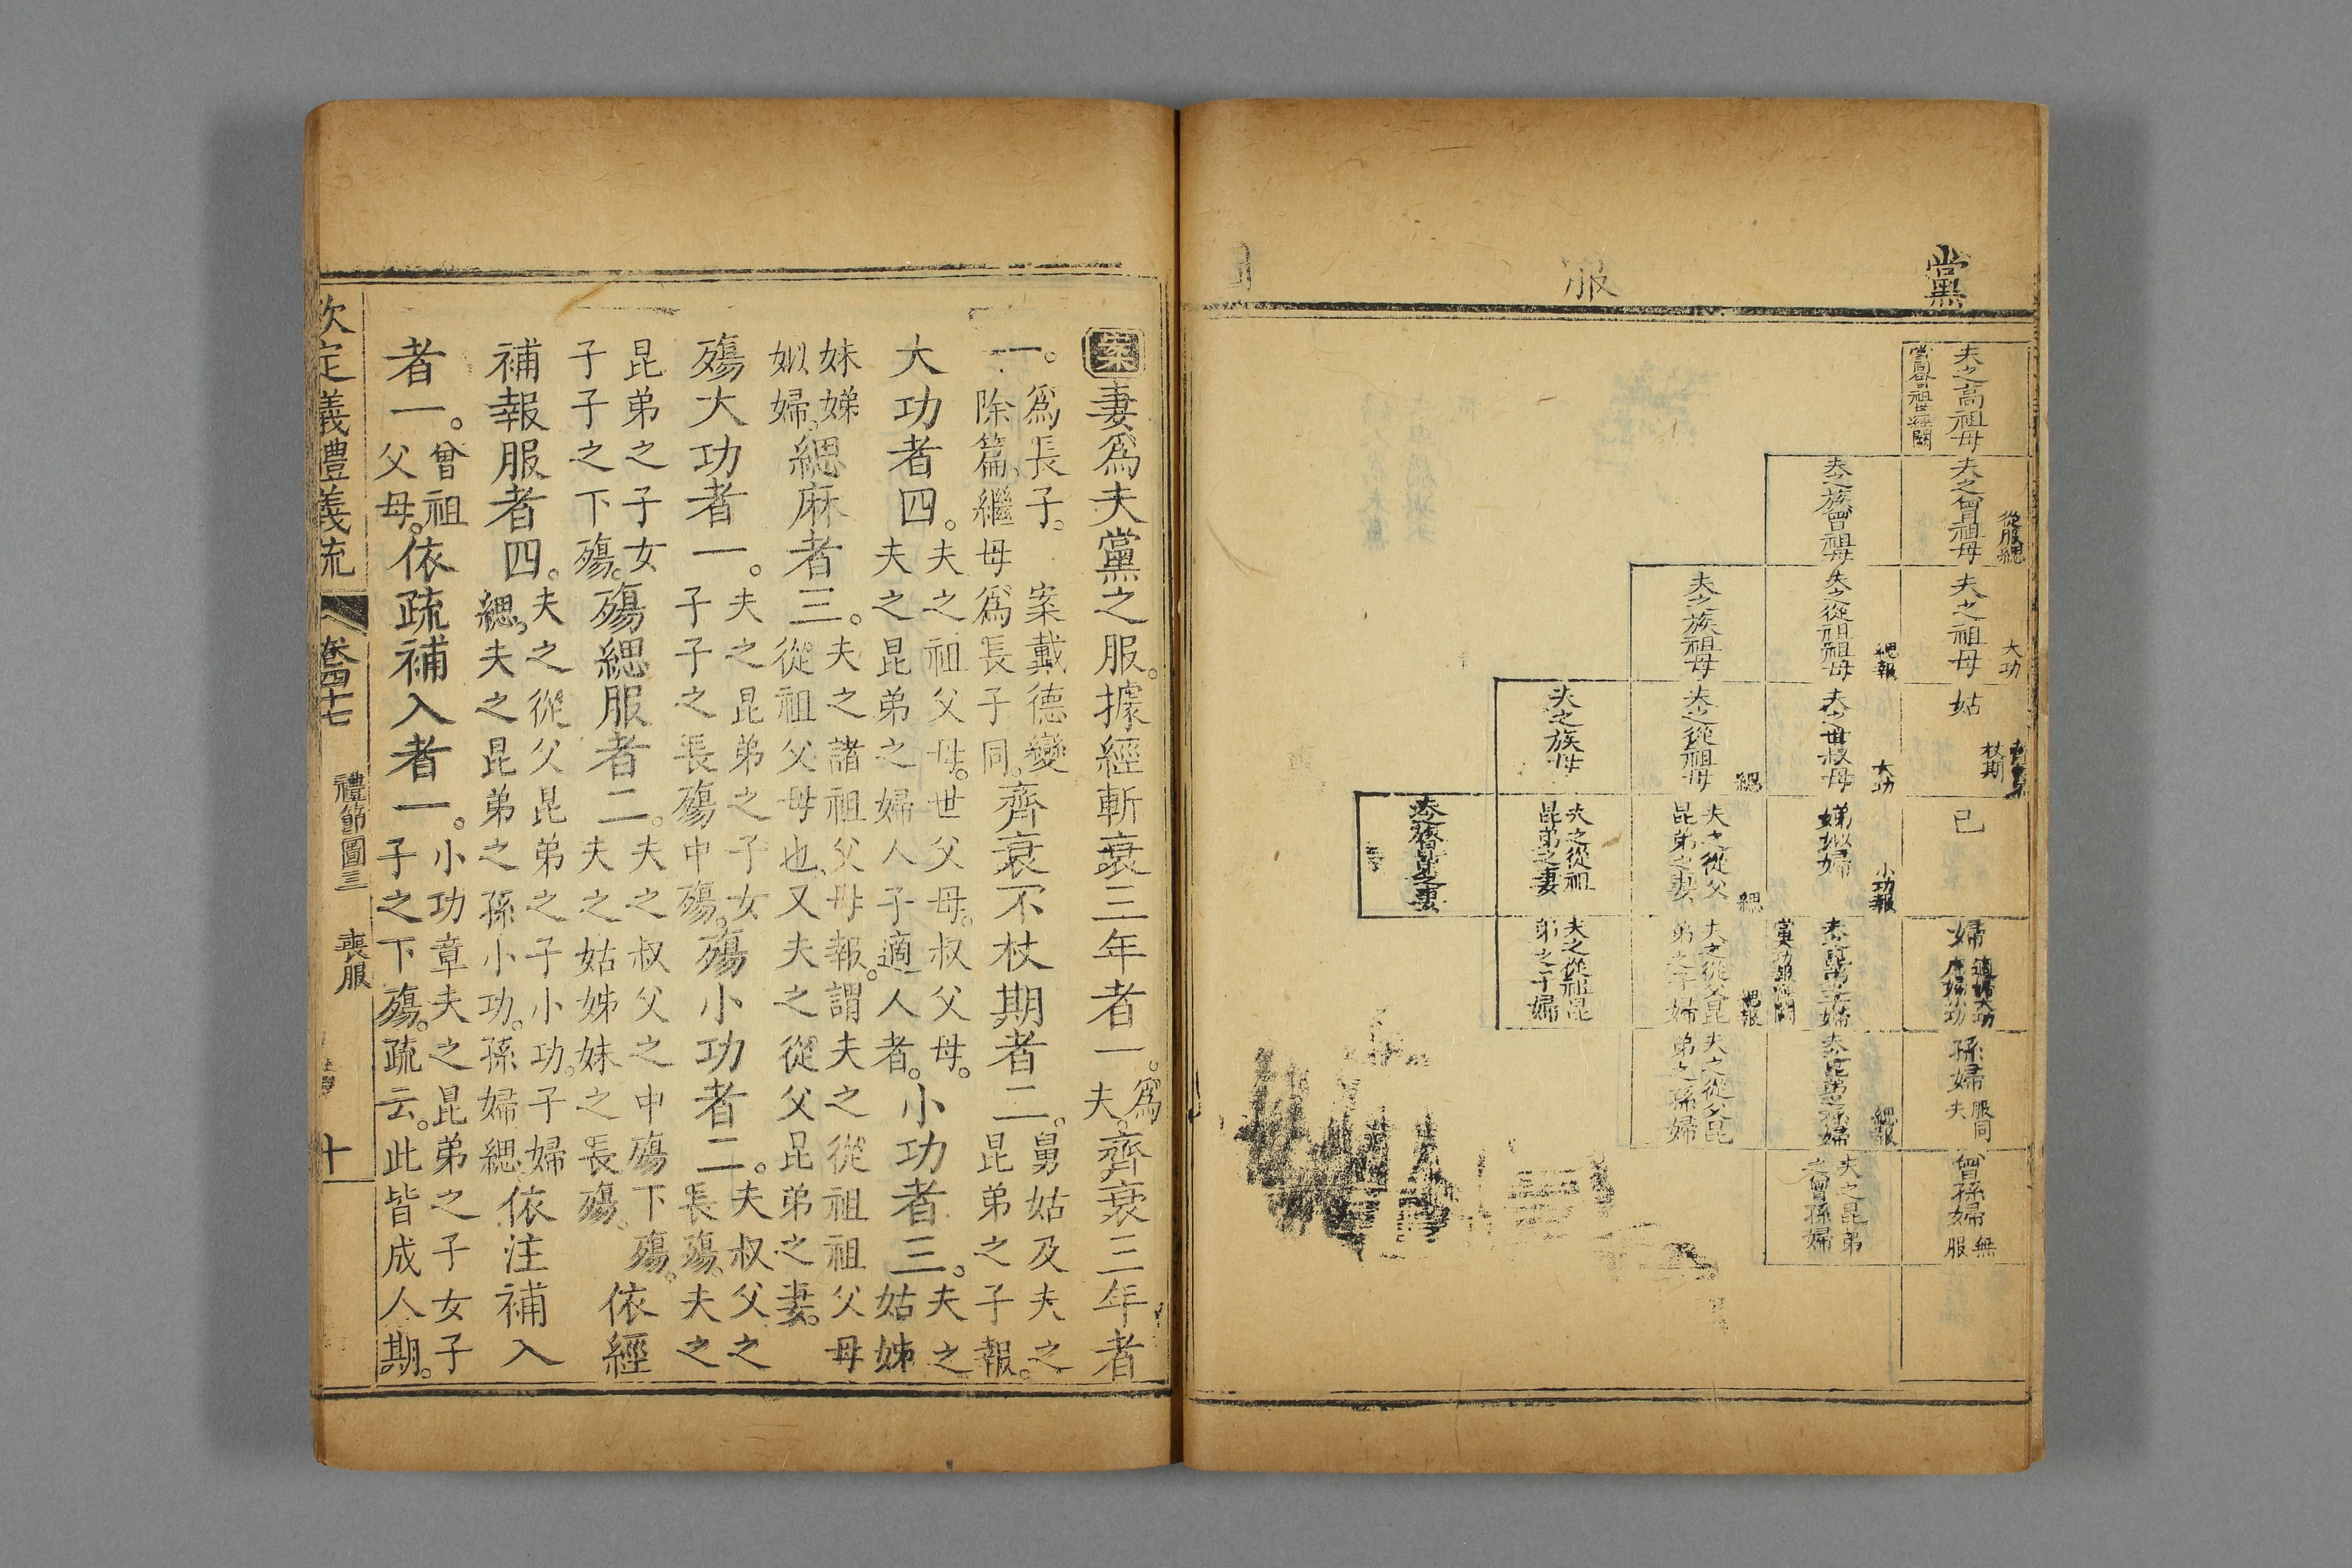 黨
服
夫之高祖母
當同曾祖世經闕
從服緦
夫之曾祖母
大功
夫之祖母
姑
杖期
己
婦
適婦大功
庶婦小功
孫婦
服同夫
曾孫婦
無服
夫之族曾祖母
緦報
夫之從祖祖母
大功
夫之世叔母
小功報
娣姒婦
夫之昆弟之子婦
緦報
夫之昆弟之孫婦
夫之昆弟之曾孫婦
夫之族祖母
緦
夫之從祖母
緦
夫之從父昆弟之妻
緦報
夫之從父昆弟之子婦
夫之從父昆弟之孫婦
夫之族母
夫之從祖昆弟之妻
夫之從祖昆弟之子婦
夫之族昆弟之妻
案妻爲夫黨之服。據經斬衰三年者一。爲夫。齊衰三年者
一。爲長子。案戴德變除篇、繼母爲長子同。齊衰不杖期者二。舅姑及夫之昆弟之子報。
大功者四。夫之祖父母。世父母。叔父母。夫之昆弟之婦人子適人者。小功者三。夫之姑姊
妹娣姒婦。緦麻者三。夫之諸祖父母報。謂夫之從祖祖父母從祖父母也、又夫之從父昆弟之妻。
殤大功者一。夫之昆弟之子女子子之長殤中殤。殤小功者二。夫叔父之長殤。夫之
昆弟之子女子子之下殤。殤緦服者二。夫之叔父之中殤下殤。夫之姑姊妹之長殤。依經
補報服者四。夫之從父昆弟之子小功。子婦緦、夫之昆弟之孫小功。孫婦緦依注補入
者一。曾祖父母。依疏補入者一。小功章夫之昆弟之子女子子之下殤。疏云。此皆成人期。
欽定義禮義疏 卷四十七 禮節圖三 喪服 十